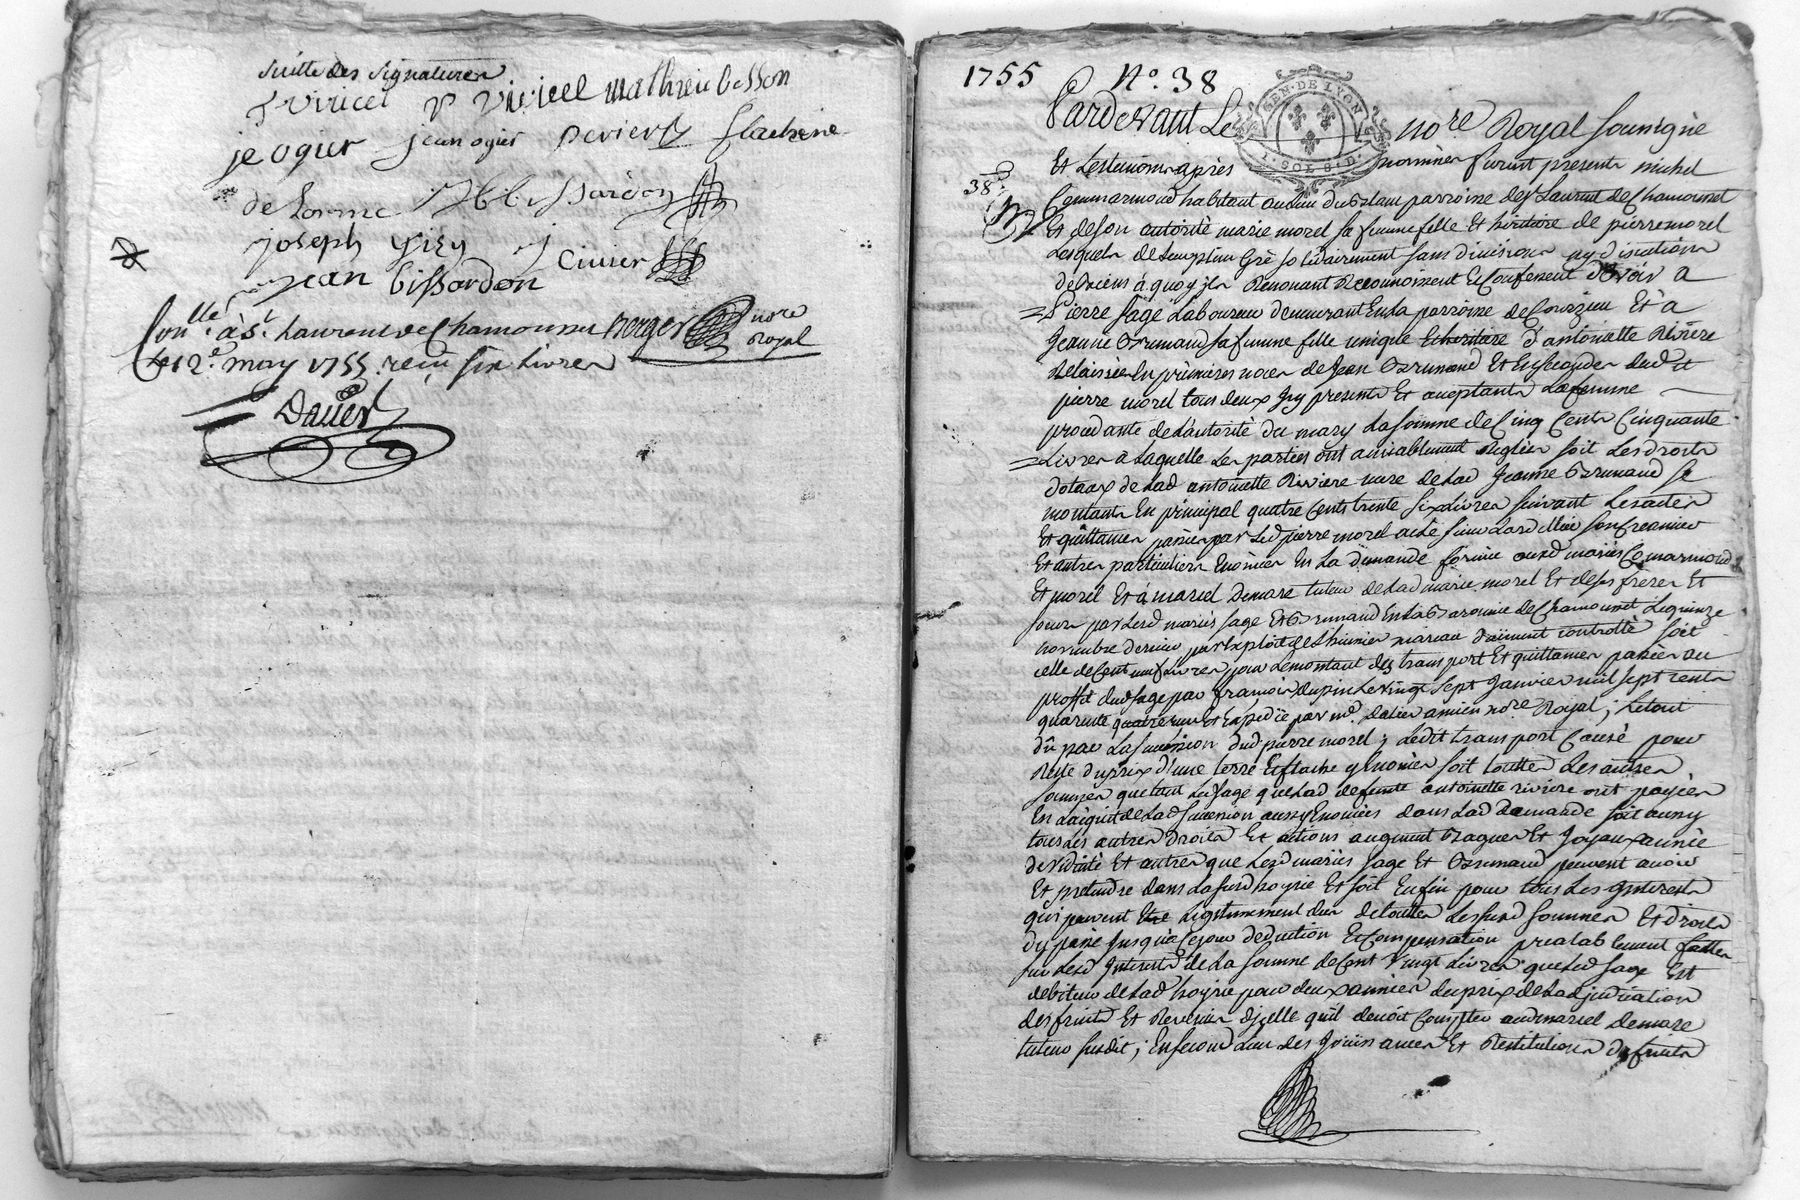 suitte des signatures
J viricel V viricel mathieu besson
je ogier jean ogier Perieri flachene
de Lorme Bissardon
joseph j Civier
jean bissardon
Con.lle à St. Laurent de Chamousset Berger nore Royal
Le 12e. may 1755. reçu six Livres
Daller
1755 No. 38
GEN. DE LYON
1. SOL. 8. D.
Pardevant Le nore Royal sousigné
Et Les temoins après nommées furent presents michel
38e
Commarmond habitant au lieu du plani parroisse de st Laurent de Chamousset
Et de son autorité marie morel sa femme fille Et héritière de pierre morel
Lesquels de leur plein Gré solidairement sans division ny discution
de biens à quoy ils Renonçant Reconnoissent Et Confessent devoir a
Pierre sage Laboureur demeurant En la parroisse de Courzieu Et à
Jeanne Brumand sa femme fille unique Et héritière d'antoinette Riviere
delaissée En premières noces de Jean Brumand Et En secondes dud it
pierre morel tous deux Icy presents Et acceptants La femme
procedante de L'autorité du mary La somme de Cinq Cents Cinquante
Livres à Laquelle Les parties ont amiablement Reglées soit Les droits
dotaux de Lad antoinette Riviere mere de Lad Jeanne Brumand se
montants En principal quatre Cents trente six Livres suivant Les actes
Et quittances passées par Led pierre morel
Et autres particuliers Enoncées En La demande formée auxd mariés Comarmond
Et morel Et à marcel Demare tuteur de Lad marie morel Et de ses frères Et
soeurs par Lesd mariés sage Et Brumand En La Baronnie de Chamousset Le quinze
novembre dernier par Exploit de Lhuinier mareau duëment controllé soit
celle de Cent neuf Livres pour Le montant des transport Et quittances passées au
proffit dud sage par françois dupin Le vingt sept Janvier mil sept cents
quarante quatre reçu Et Expedié par me. Daller ancien nore Royal; Le tout
dû par La succession dud pierre morel; Ledit transport Causé pour
Reste du prix d'une terre Et flache y Enoncées soit touttes Les autres
sommes que tant Led sage que Lad defunte antoinette riviere ont payées
En L'acquit de Lad succession aussy Enoncées dans Lad demande soit aussy
tous Les autres droits Et actions augment Bagues Et Joyaux année
de viduité Et autres que Lesd mariés sage Et Brumand peuvent avoir
Et pretendre dans La susd hoyrie Et soit Enfin pour tous Les Interests
qui peuvent Etre Legitimement dûs de touttes Lesusd sommes Et droits
du passé Jusqu'a Ce jour deduction Et Compensation prealablement faitte
sur Lesd Interests de La somme de Cent vingt Livres que Led sage Est
debiteur de Lad hoyrie pour deux années du prix de La adjudication
des fruits Et Revenus d'Icelle qu'il devoit Compter aud marcel demare
tuteur susdit; En second Lieu des Jouissances Et Restitutions de fruits